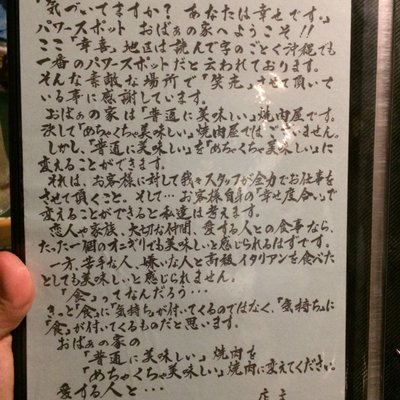 「気づいてますか? あなたは幸せです。」
パワースポット おばぁの家へようこそ!!
ここ「幸喜」地区は読んで字のごとく沖縄でも
一番のパワースポットだと云われております。
そんな素敵な場所で「笑売」させて頂いて
いる事に感謝しています。
おばぁの家は「普通に美味しい」焼肉屋です。
決して「めちゃくちゃ美味しい」焼肉屋ではございません。
しかし、「普通に美味しい」を「めちゃくちゃ美味しい」に
変えることができます。
それは、お客様に対して我々スタッフが全力でお仕事を
させて頂くこと。そして…お客様自身の「幸せ度合い」で
変えることができると私達は考えます。
恋人や家族、大切な仲間、愛する人との食事なら、
たった一個のオニギリでも美味しいと感じられるはずです。
一方、苦手な人、嫌いな人と高級イタリアンを食べた
としても美味しいと感じられません。
「食」ってなんだろう…
きっと「食」に「気持ち」が付いてくるのではなく、「気持ち」に
「食」が付いてくるものだと思います。
おばぁの家の
「普通に美味しい」焼肉を
「めちゃくちゃ美味しい」焼肉に変えてください。
愛する人と…
店主